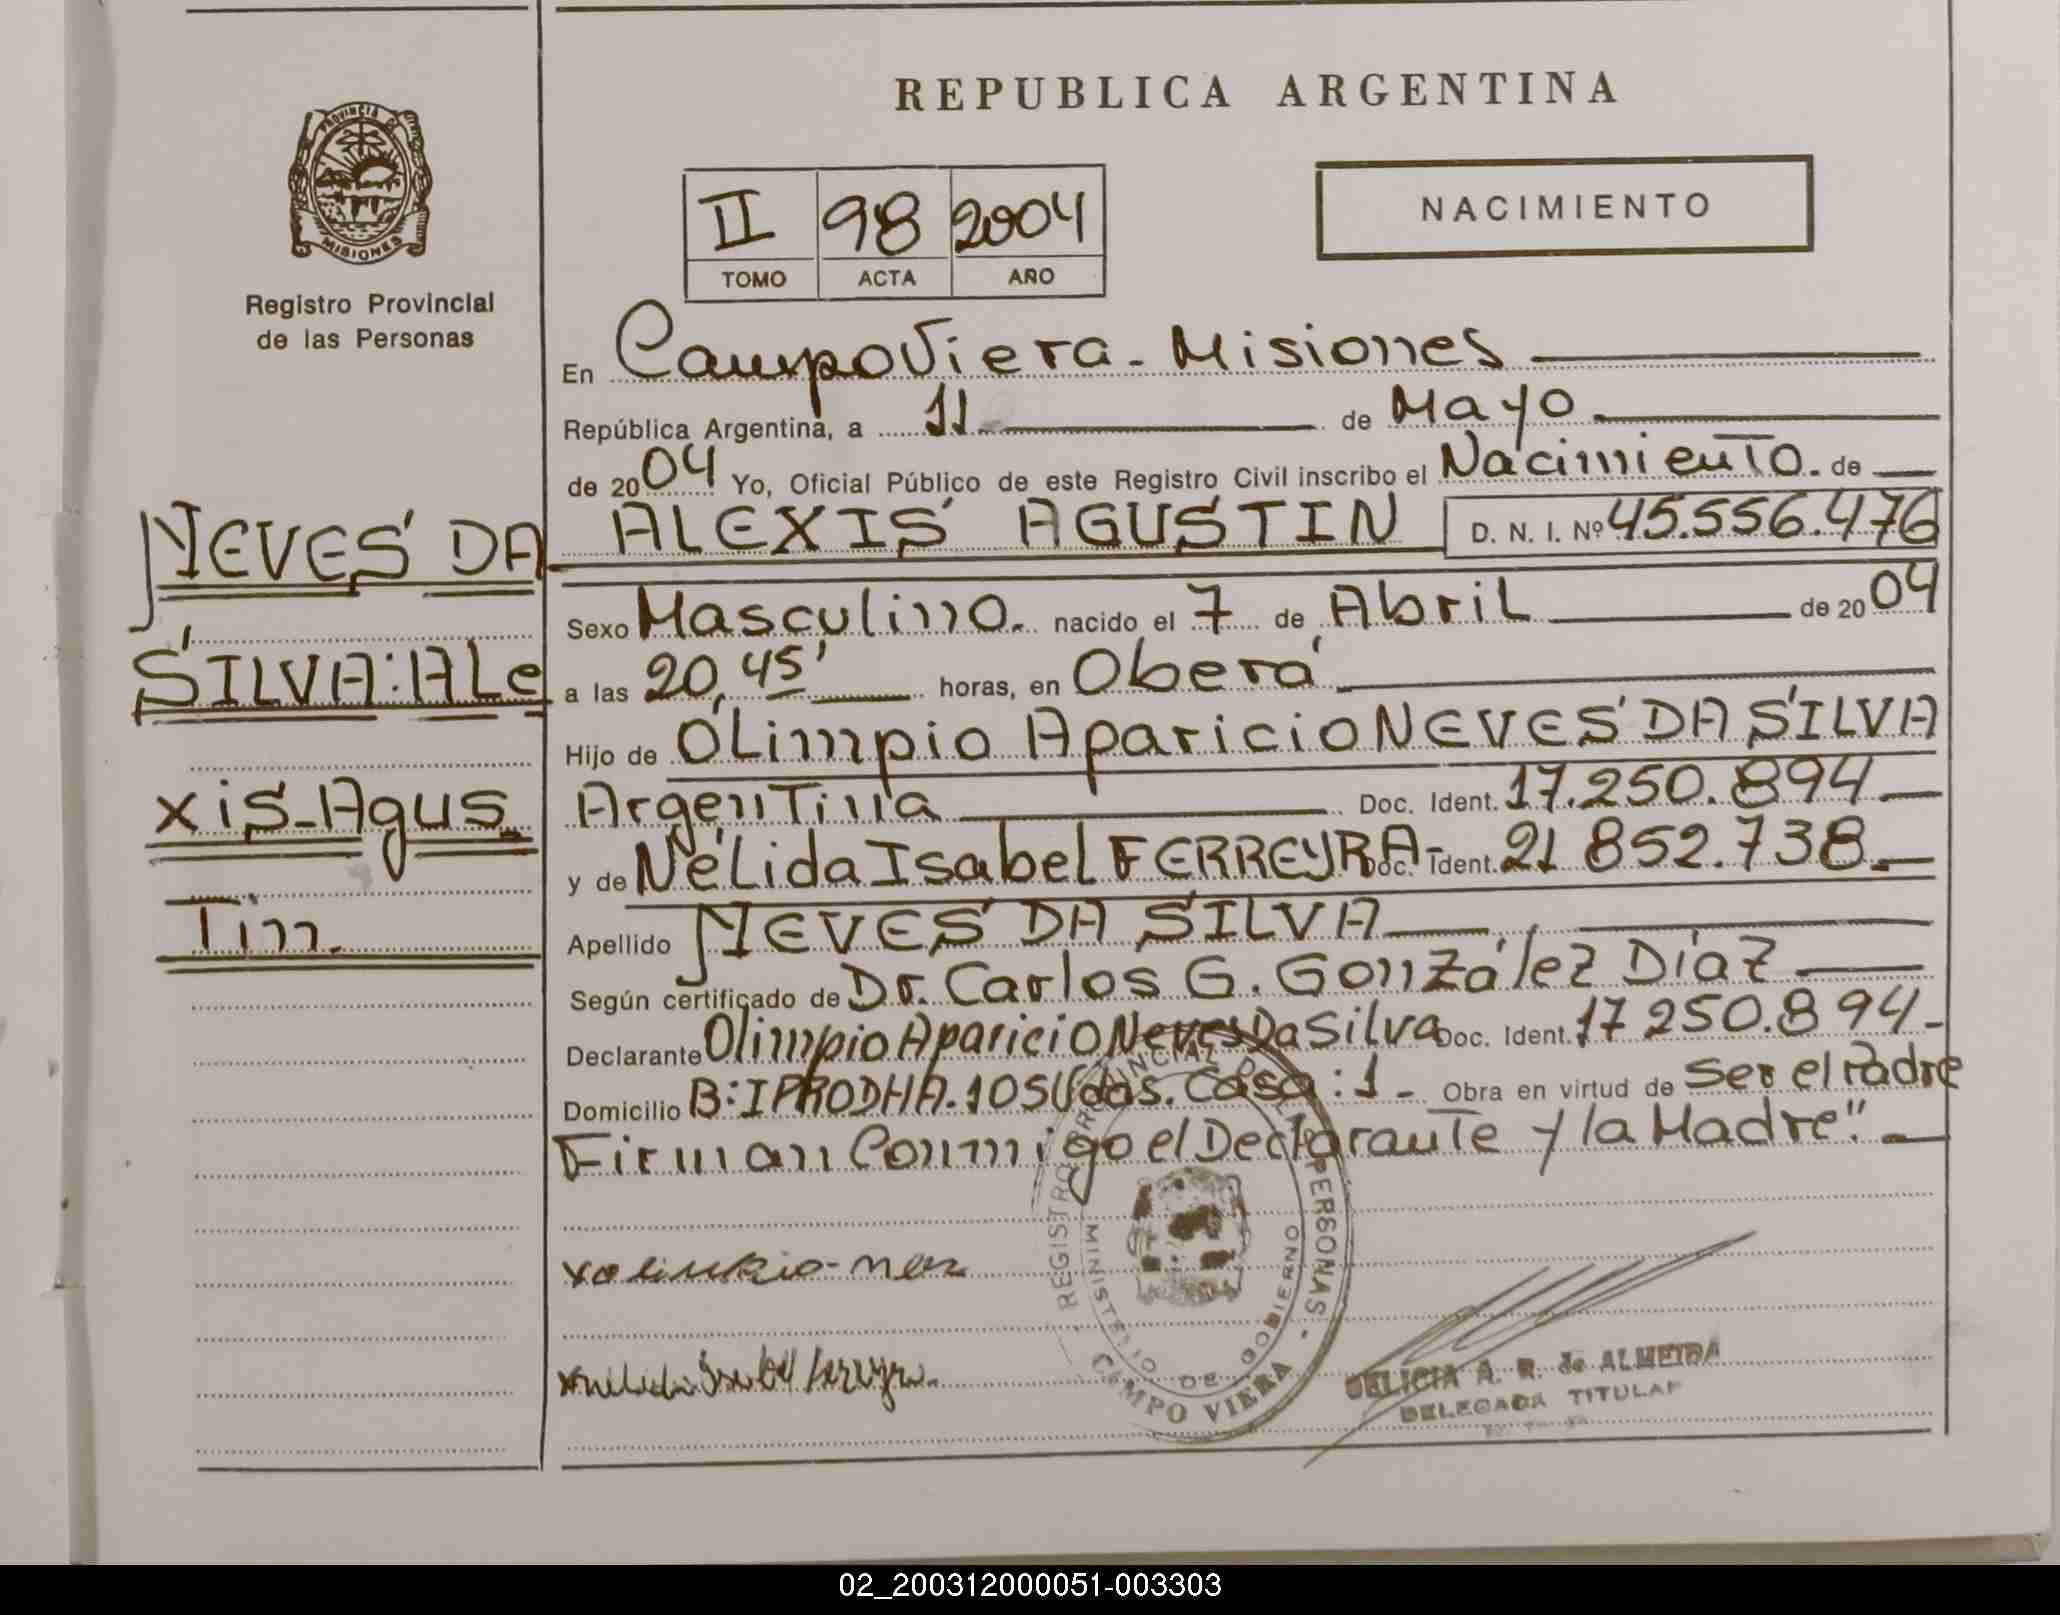 REPUBLICA ARGENTINA
PROVINCIA DE
MISIONES
Registro Provincial
de las Personas
II 98 2004
TOMO ACTA AÑO
NACIMIENTO
En Campo Viera - Misiones
República Argentina, a 11 de Mayo
de 2004 Yo, Oficial Público de este Registro Civil inscribo el Nacimiento. de
NEVES DA
SILVA: ALe
xis - Agus
Tin.
ALEXIS AGUSTIN D. N. I. Nº 45.556.476
Sexo Masculino. nacido el 7 de Abril de 2004
a las 20,45' horas, en Oberá
Hijo de OLimpio Aparicio NEVES DA SILVA
Argentina Doc. Ident. 17.250.894
y de NéLida Isabel FERREYRA - Doc. Ident. 21 852.738.
Apellido NEVES DA SILVA
Según certificado de Dr. Carlos G. González Díaz
Declarante Olimpio Aparicio Neves Da Silva Doc. Ident. 17 250.894 -
Domicilio B: IPRODHA. 105 Vdas. Casa: 1 - Obra en virtud de Ser el Padre
Firman Conmigo el Declarante y la Madre".
REGISTRO PROVINCIAL DE LAS PERSONAS -
MINISTERIO DE GOBIERNO
CAMPO VIERA
DELICIA A. R. de ALMEIDA
DELEGADA TITULAR
02_200312000051-003303